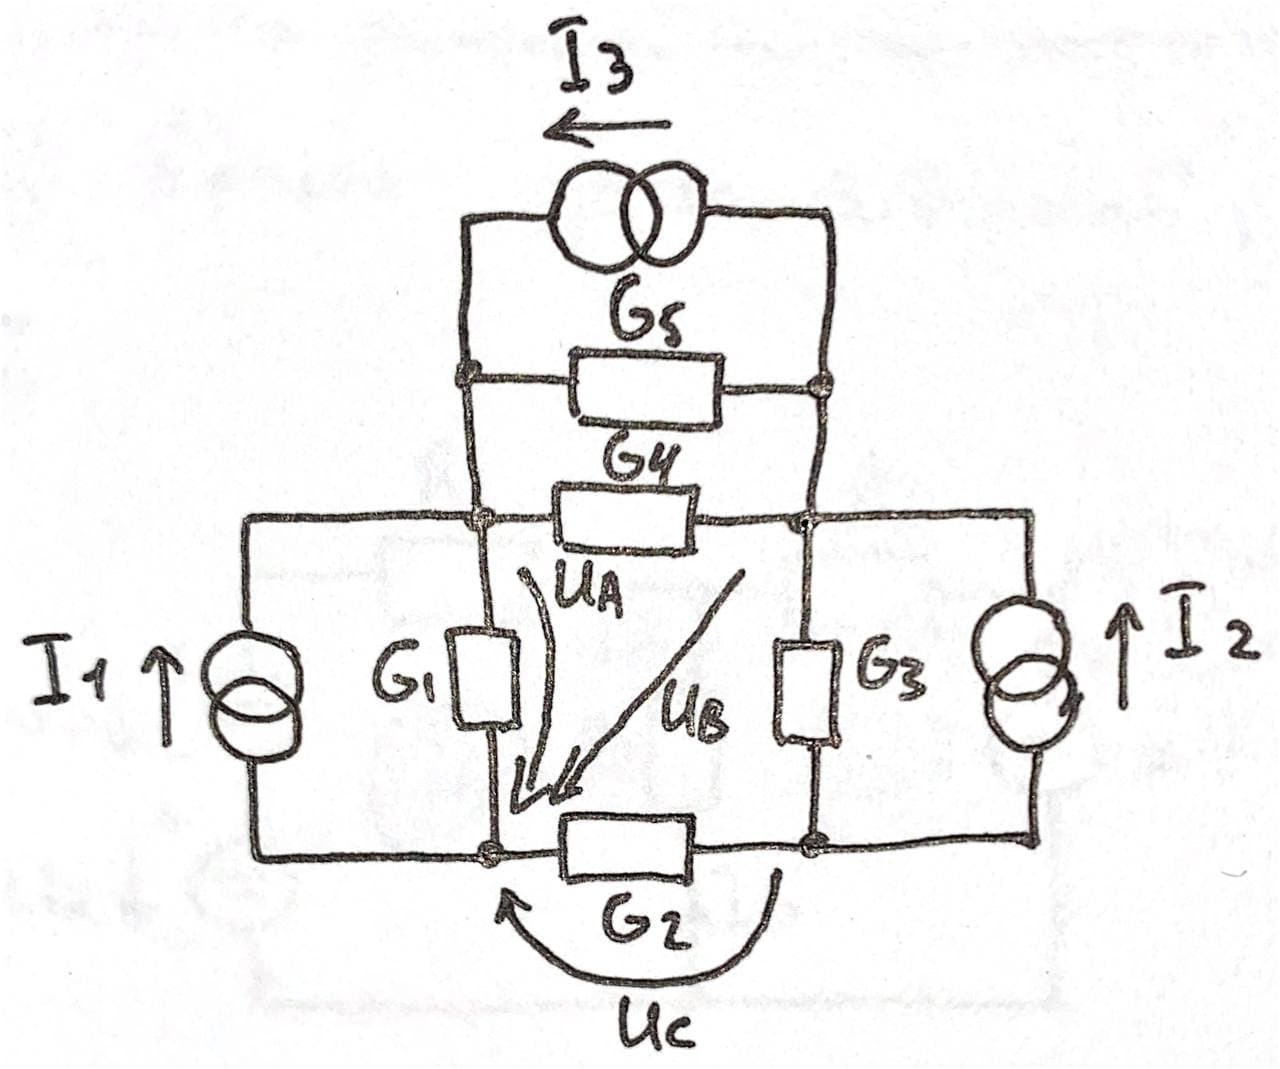 I3
G5
G4
UA
I1
G1
UB
G3
I2
G2
UC